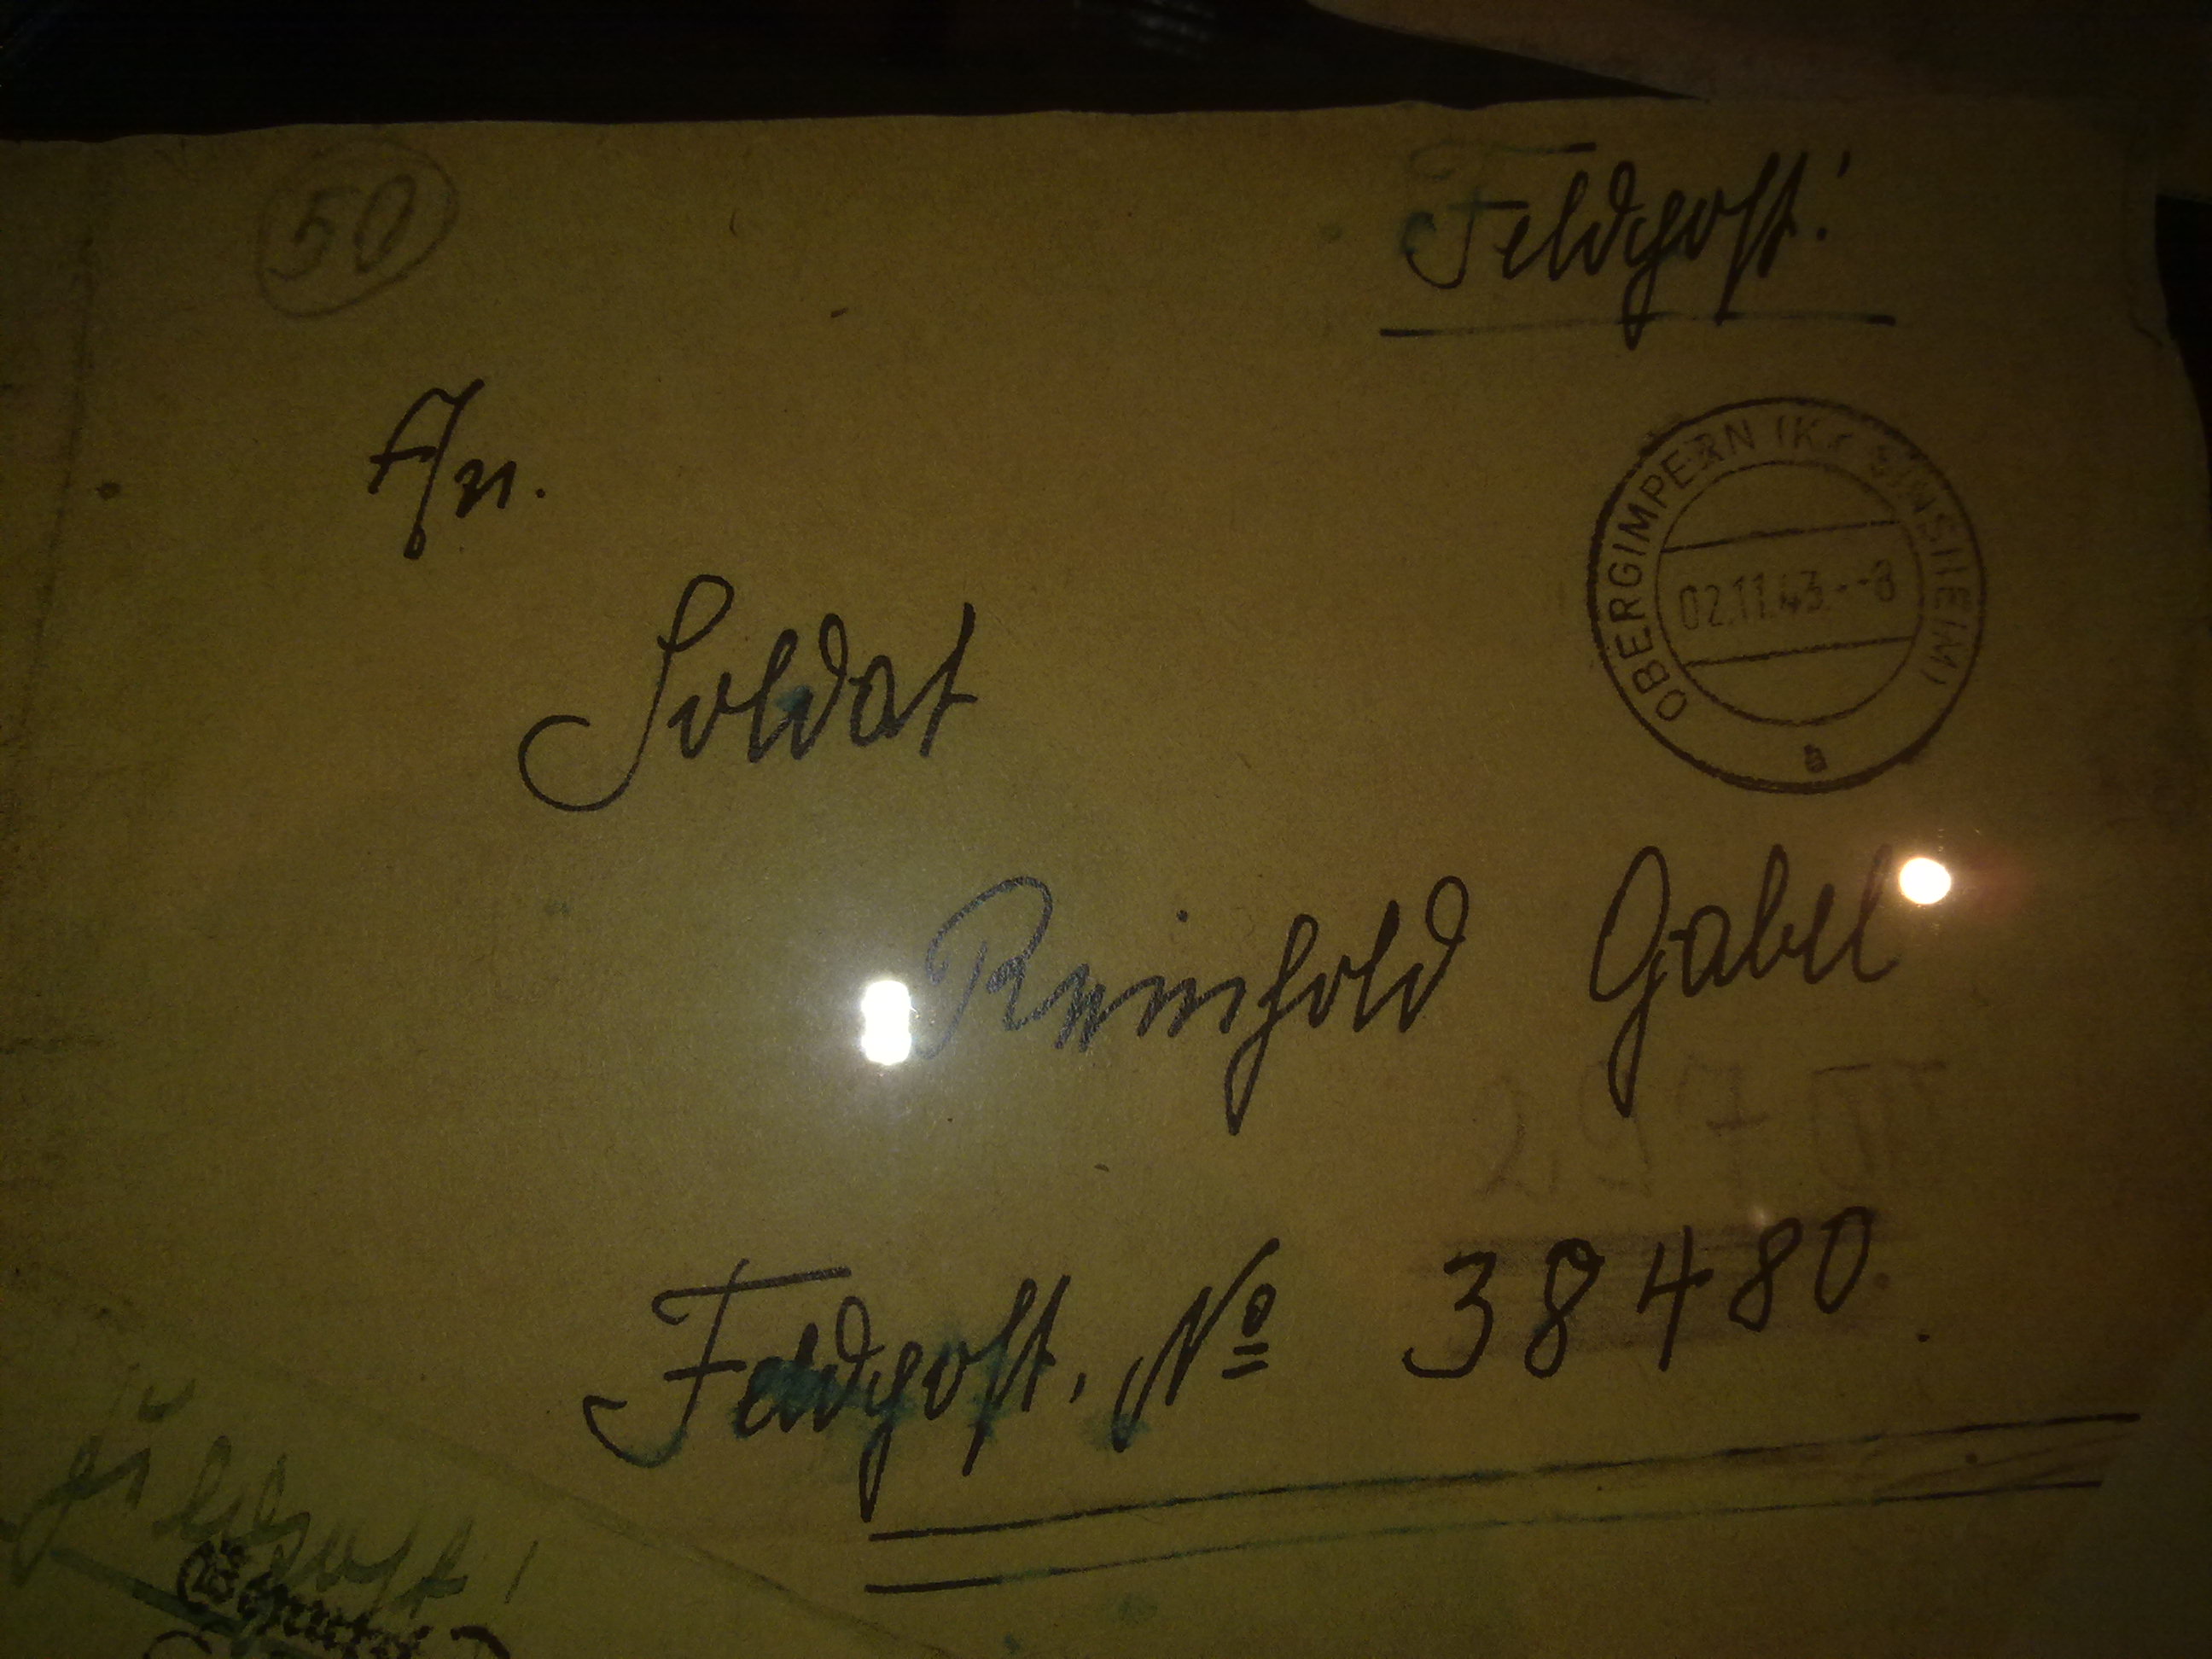 50
Feldpost!
An.
OBERGIMPERN (Kr SINSHEIM)
02.11.43.--8
a
Soldat
Reinhold Gabel
Feldpost. Nº 38480.